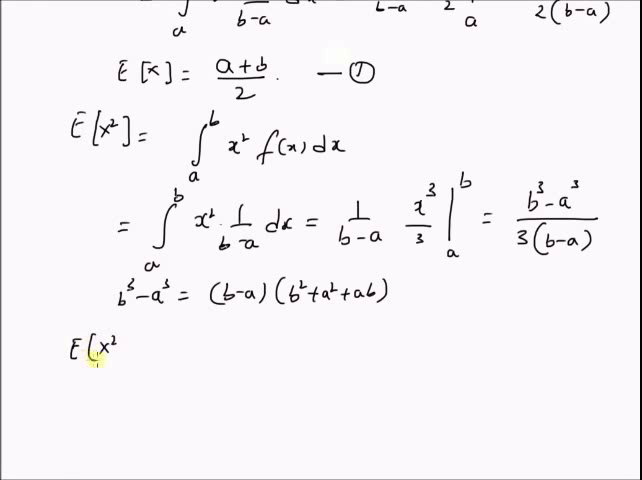 a b-a b-a 2 a 2(b-a)
E[x] = a+b/2 . — ①
E[x²] = ∫_a^b x² f(x) dx
= ∫_a^b x² · 1/b-a dx = 1/b-a x³/3 |_a^b = b³-a³/3(b-a)
b³-a³ = (b-a)(b²+a²+ab)
E[x²